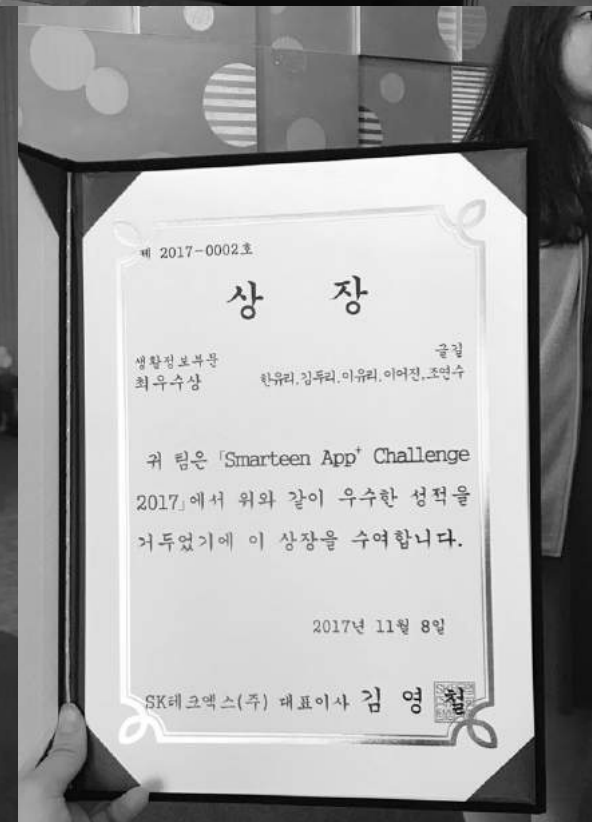 제 2017-0002호
상 장
생활정보부문
최우수상
글길
한유리,김두리,이유리,이어진,조연수
귀 팀은 「Smarteen App⁺ Challenge
2017」에서 위와 같이 우수한 성적을
거두었기에 이 상장을 수여합니다.
2017년 11월 8일
SK테크엑스(주) 대표이사 김 영 철